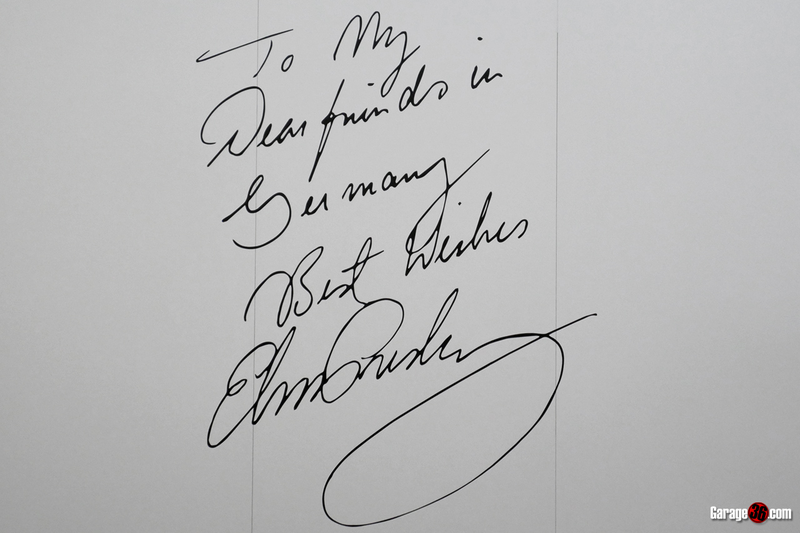 To My
Dear friends in
Germany
Best Wishes
Elvis Presley
Garage36.com